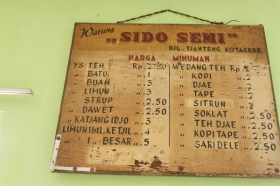 Warung
„SIDO SEMI"
DJL. TJANTENG KOTAGEDE
HARGA MINUMAN
YS TEH Rp 2.50 WEDANG TEH Rp
„ BATU „ 1 „ KOPI „ 2
„ BUAH „ 3 „ DJAE „ 2
„ LIMUN „ 3 „ TAPE „ 2
STRUP „ 2.50 „ SITRUN „ 2
„ DAWET „ 2.50 „ SOKLAT „ 2.50
„ KATJANG IDJO „ 3 „ TEH DJAE „ 2.50
LIMUN IDJ. KETJIL „ 4 „ KOPI TAPE „ 2.50
„ I„ BESAR „ 5 „ SARIDELE „ 2.50